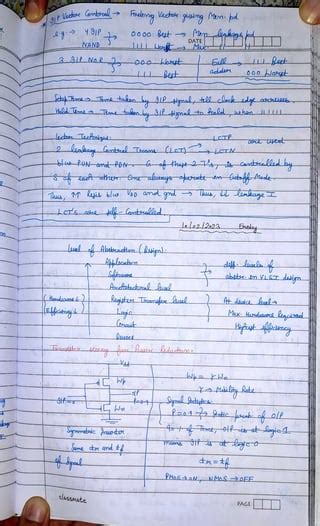 I/P Vector Control → Finding Vector giving Min. pd
e.g → 4 I/P NAND } 0000 Best → Min leakage pd
1111 Worst → Max
DATE
3 I/P NOR } 000 Worst
111 Best
Full adder → 111 Best
000 Worst
Setup Time → Time taken by I/P signal, till clock edge
Hold Time → Time taken by I/P signal to hold, when
Lector Technique:
2 leakage Control Trans (LCT) → LCTP are used
→ LCTN
b/w PUN and PDN. G of these 2 T's, is controlled by
S of each other. One always operate in Cutoff Mode
Thus, ↑↑ Resis b/w VDD and gnd → Thus, ↓↓ leakage I
LCT's are self-Controlled.
Level of Abstraction (Design):
Application
Software
Architectural level
Register Transfer level
Logic
Circuit
Device
(Hardware ↓
(Efficiency ↓
diff. levels of
abstr. in VLSI design
At device level →
Max Hardware required
Highest efficiency
Transistor sizing for Power Reduction:
Vdd
Wp
Wn
I/P = 0
O/P
Symmetric Inverter
Same tr and tf
of Signal
Wp = γ Wn
γ → Mobility Ratio
Signal Statistics
→ Static prob of O/P
90% of Time, O/P is at logic 1
means I/P is at logic 0
tr = tf
PMOS → ON, NMOS → OFF
classmate
PAGE